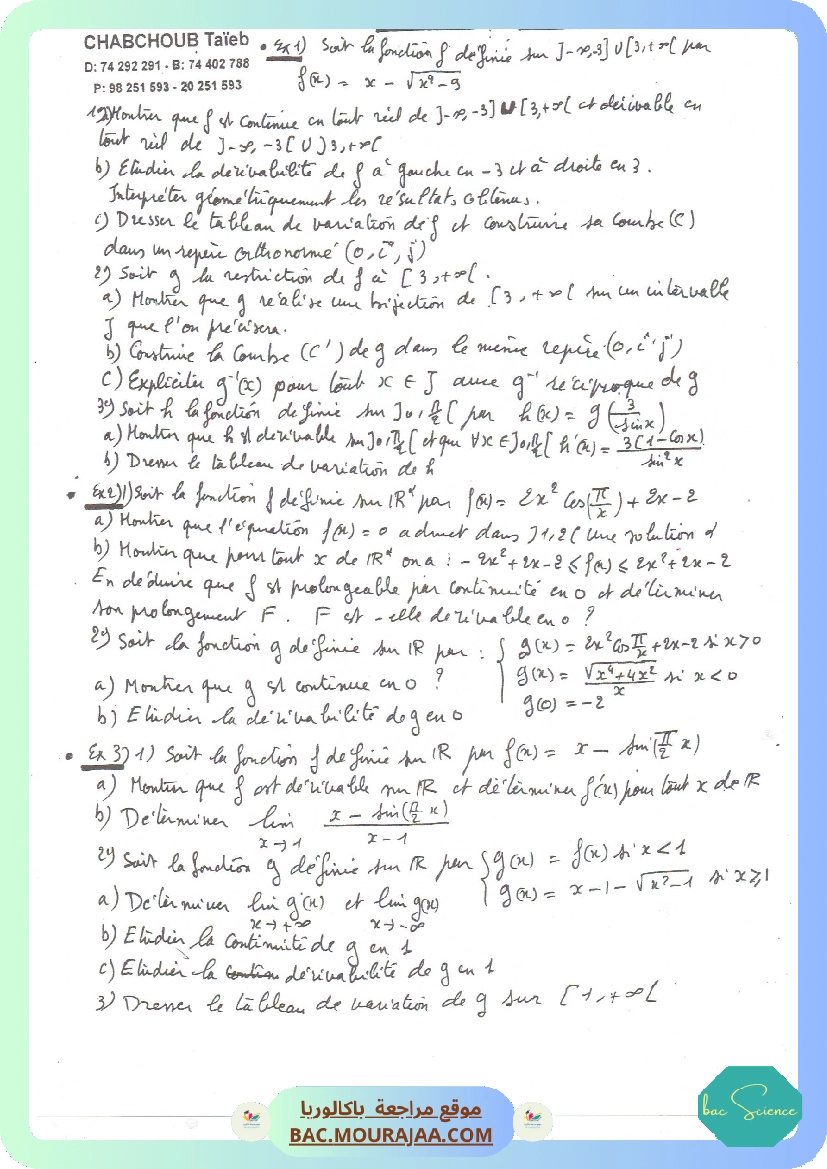 CHABCHOUB Taïeb
D: 74 292 291 - B: 74 402 788
P: 98 251 593 - 20 251 593
• Ex 1) Soit la fonction f définie sur ]-∞,-3] ∪ [3,+∞[ par
f(x) = x - √(x²-9)
1°) a) Montrer que f est continue en tout réel de ]-∞,-3] ∪ [3,+∞[ et dérivable en
tout réel de ]-∞,-3[ ∪ ]3,+∞[
b) Etudier la dérivabilité de f à gauche en -3 et à droite en 3.
Interpréter géométriquement les résultats obtenus.
c) Dresser le tableau de variation de f et construire sa courbe (C)
dans un repère orthonormé (O, i, j)
2°) Soit g la restriction de f à [3,+∞[.
a) Montrer que g réalise une bijection de [3,+∞[ sur un intervalle
J que l'on précisera.
b) Construire la courbe (C') de g dans le même repère (O, i, j)
c) Expliciter g⁻¹(x) pour tout x ∈ J avec g⁻¹ réciproque de g
3°) Soit h la fonction définie sur ]0, π/2[ par h(x) = g(3/sin x)
a) Montrer que h est dérivable sur ]0, π/2[ et que ∀x ∈ ]0, π/2[ h'(x) = 3(1-cos x)/sin² x
b) Dresser le tableau de variation de h
• Ex 2) 1) Soit la fonction f définie sur IR* par f(x) = 2x² cos(π/x) + 2x - 2
a) Montrer que l'équation f(x) = 0 admet dans ]1,2[ une solution α
b) Montrer que pour tout x de IR* on a : -2x²+2x-2 ≤ f(x) ≤ 2x²+2x-2
En déduire que f est prolongeable par continuité en 0 et déterminer
son prolongement F. F est-elle dérivable en 0 ?
2°) Soit la fonction g définie sur IR par : { g(x) = 2x² cos π/x + 2x - 2 si x > 0
g(x) = √(x⁴+4x²)/x si x < 0
g(0) = -2
a) Montrer que g est continue en 0 ?
b) Etudier la dérivabilité de g en 0
• Ex 3) 1) Soit la fonction f définie sur IR par f(x) = x - sin(π/2 x)
a) Montrer que f est dérivable sur IR et déterminer f'(x) pour tout x de IR
b) Déterminer lim x→1 (x - sin(π/2 x))/(x - 1)
2°) Soit la fonction g définie sur IR par { g(x) = f(x) si x < 1
g(x) = x - 1 - √(x²-1) si x ≥ 1
a) Déterminer lim x→+∞ g(x) et lim x→-∞ g(x)
b) Etudier la continuité de g en 1
c) Etudier la dérivabilité de g en 1
3) Dresser le tableau de variation de g sur [1,+∞[
bac Science
موقع مراجعة باكالوريا
BAC.MOURAJAA.COM